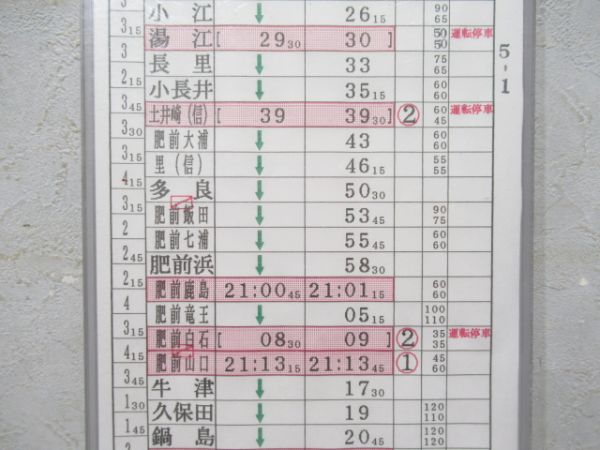 3 小江 ↓ 26 15 90 65
3 15 湯江 [ 29 30 30 ] 50 50 運転停車
3 長里 ↓ 33 75 65
3 小長井 ↓ 35 15 60 60
3 45 土井崎(信) [ 39 39 30 ] ② 60 45 運転停車
3 30 肥前大浦 ↓ 43 60 60
3 15 里(信) ↓ 46 15 55 55
4 15 多良 ↓ 50 30
3 15 肥前飯田 ↓ 53 45 90 75
2 肥前七浦 ↓ 55 45 60 60
2 45 肥前浜 ↓ 58 30
2 15 肥前鹿島 21:00 45 21:01 15 60 60
4 肥前竜王 ↓ 05 15 100 110
3 15 肥前白石 [ 08 30 09 ] ② 35 35 運転停車
4 15 肥前山口 21:13 15 21:13 45 ① 45 60
3 45 牛津 ↓ 17 30
1 30 久保田 ↓ 19 120 110
1 45 鍋島 ↓ 20 45 120 120
5,1